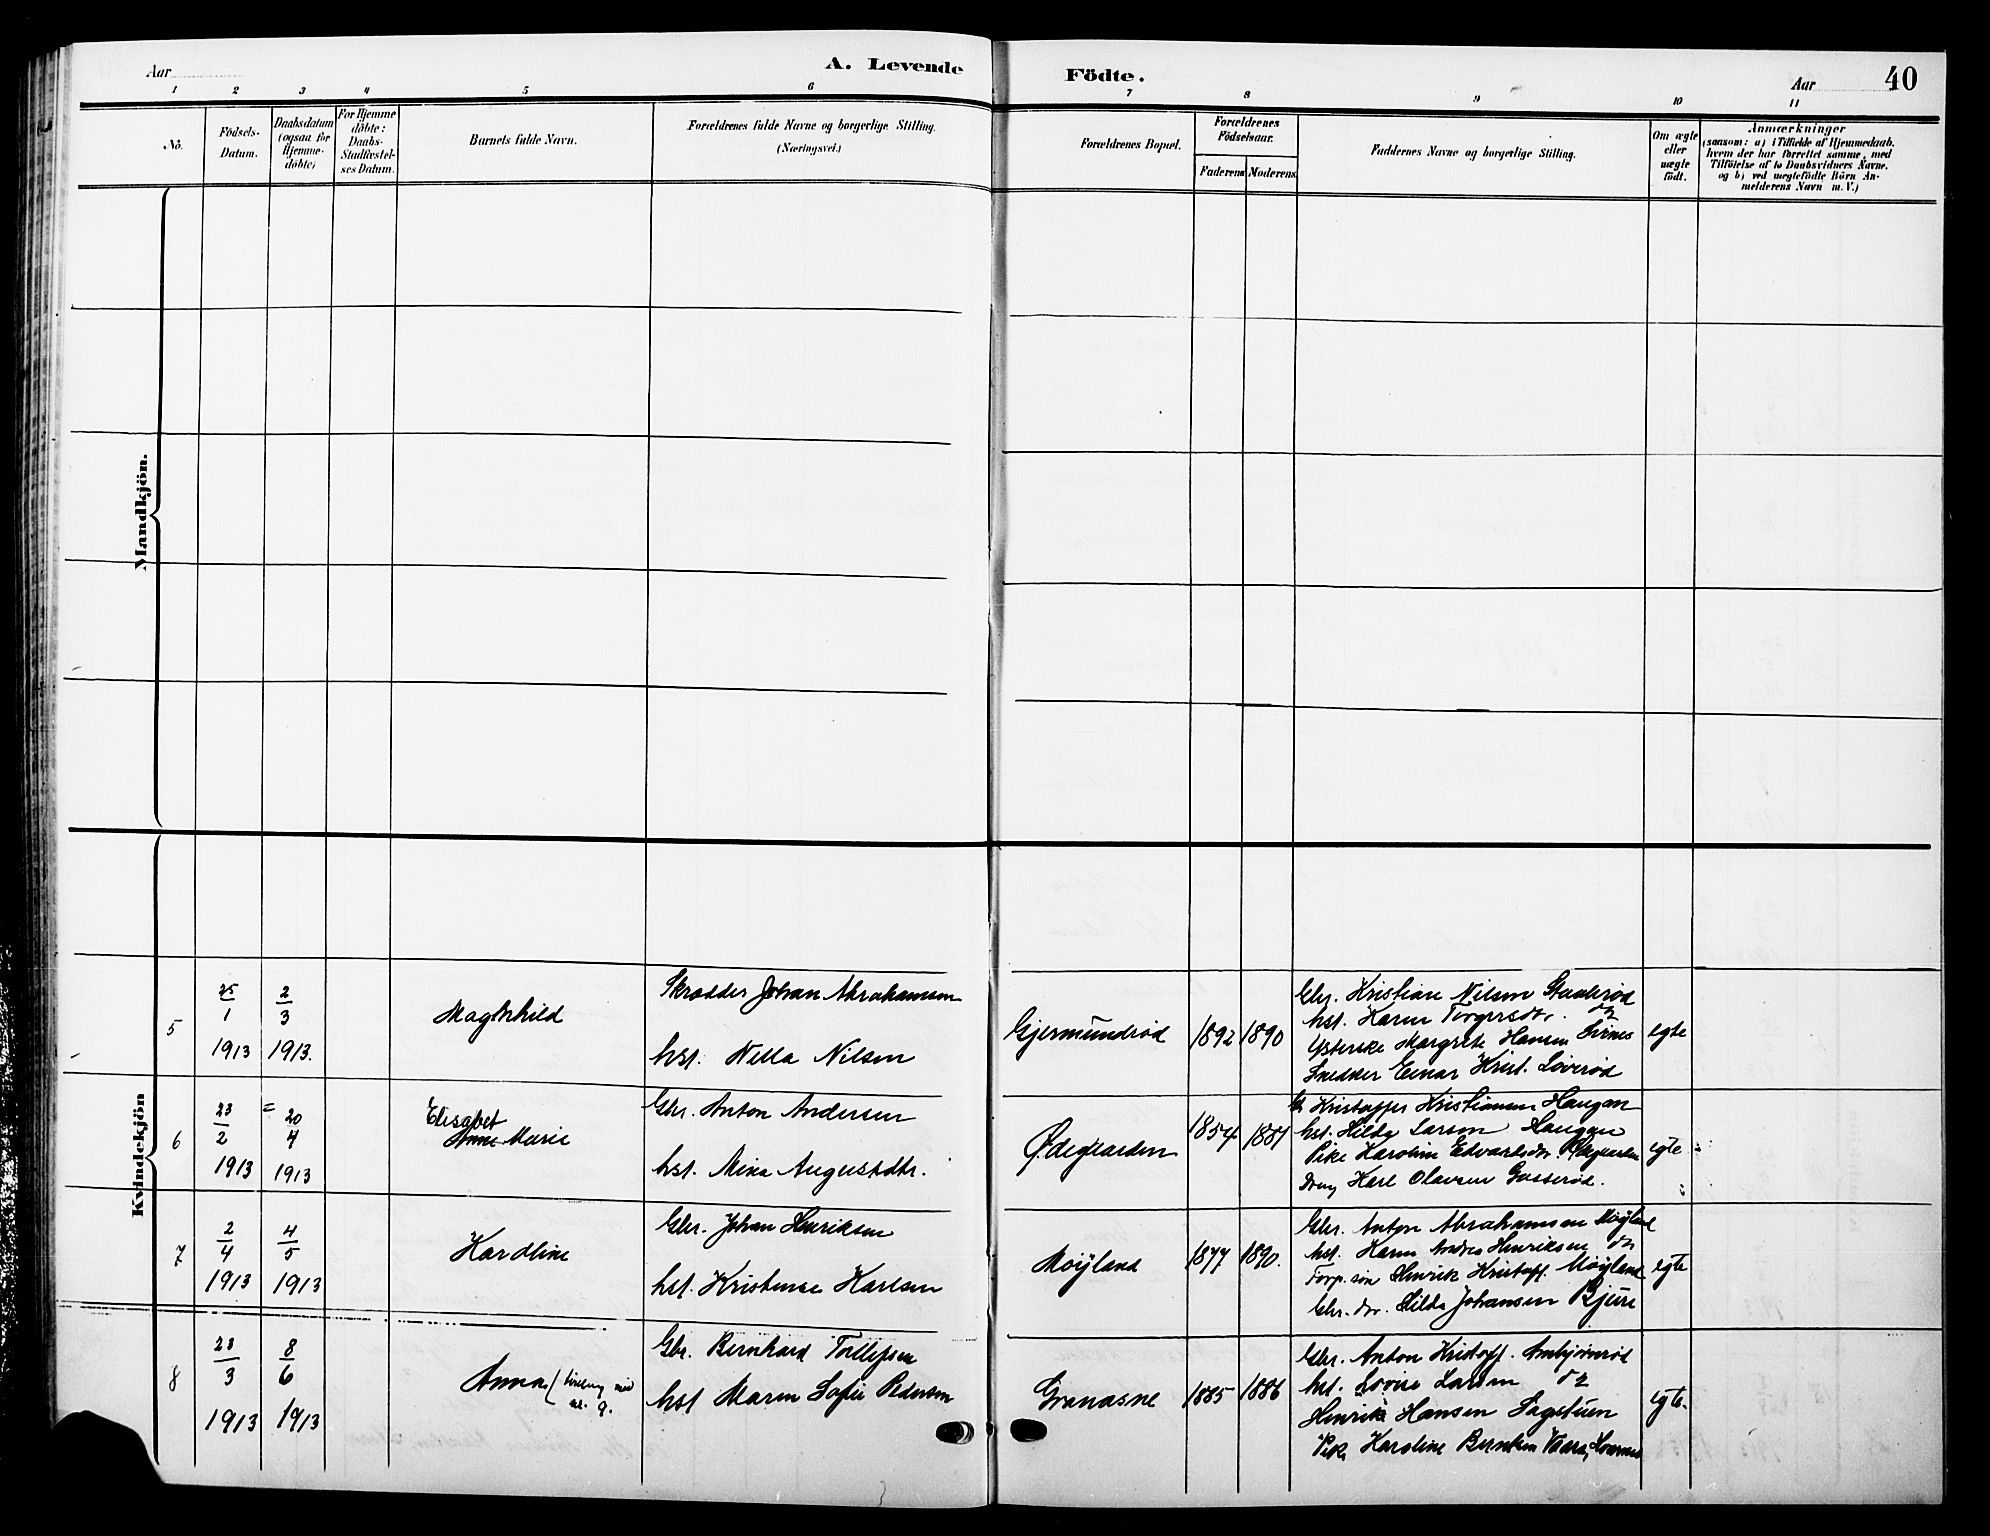 Aar
A. Levende
Födte.
Aar
40
1 2 3 4 5 6 7 8 9 10 11
No.
Födsels-
Datum.
Daabsdatum
(ogsaa for
Hjemme-
döbte)
For Hjemme
döbte:
Daabs-
Stadfæstel-
ses Datum.
Barnets fulde Navn.
Forældrenes fulde Navne og borgerlige Stilling.
(Næringsvei.)
Forældrenes Bopæl.
Forældrenes
Födselsaar.
Faderens
Moderens
Faddernes Navne og borgerlige Stilling.
Om ægte
eller
uægte
födt.
Anmærkninger
(saasom: a) i Tilfælde af Hjemmedaab,
hvem der har forrettet samme, med
Tilföielse af to Daabsvidners Navne,
og b) ved uægtefödte Börn An-
melderens Navn m. V.)
Mandkjön.
Kvindekjön
5
25/1
1913
2/3
1913.
Maghhild
Skrædder Johan Abrahamsen
hst. Nella Nilsen
Gjermundrød
1892
1890
Gbr. Kristian Nilsen
hst. Karen Torgersdtr.
Margrete Hansen
Snedker Einar Krist. Løverød
egte
6
23/2
1913
20/4
1913
Elisabet
Anne Marie
Gbr. Anton Andersen
hst. Mina Augustadtr.
Ødegaarden
1854
1881
Kristoffer Kristiansen Haugan
hst. Hilda Larsen Haugan
Pike Karoline Edvardsdtr.
Karl Olavsen Gosserød.
egte
7
2/4
1913
4/5
1913
Karoline
Gbr. Johan Henriksen
hst. Kristense Karlsen
Møyland
1877
1890.
Gbr. Anton Abrahamsen Møyland
hst. Karen Andrea Henriksen do
Forp. søn Henrik Kristoff. Møyland
Gbr. dtr. Hilda Johansen Bjure
egte
8
23/3
1913
8/6
1913
Anna
Gbr. Bernhard Tollefsen
hst Maren Sofie Pedersen
Granasne
1885
1886
Gbr. Anton Kristoff.
hst. Lovise Larsen do
Henrik Hansen Sagstuen
Pike Karoline
egte.